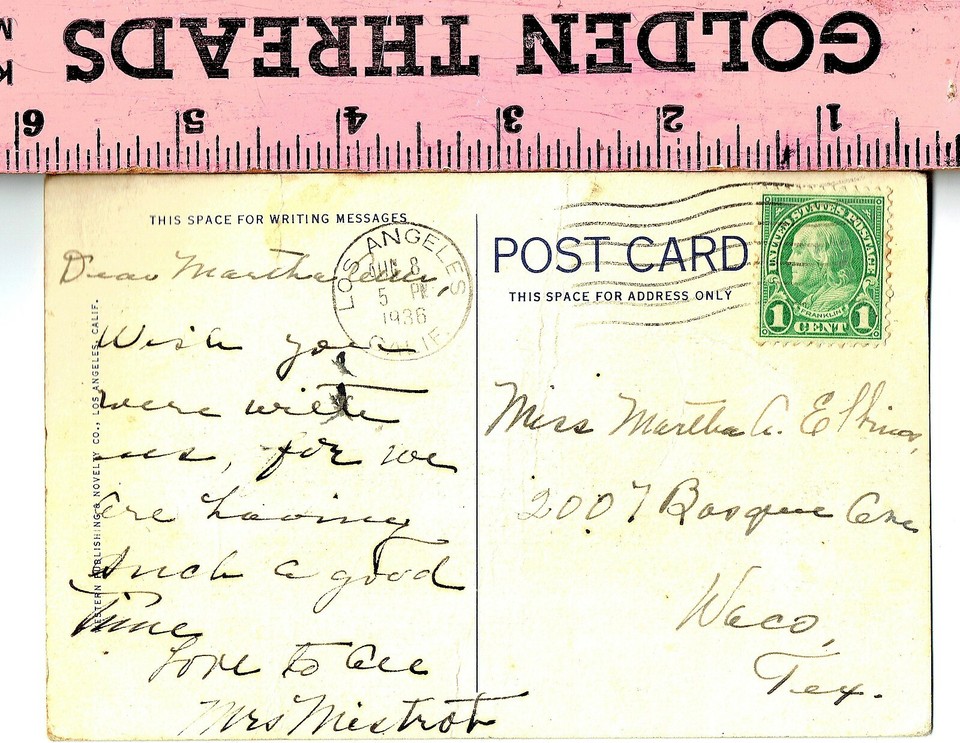 GOLDEN THREADS
1 2 3 4 5 6
THIS SPACE FOR WRITING MESSAGES
Dear Martha
Wish you
were with
us, for we
are having
such a good
time
Love to all
Mrs Mistrot
WESTERN PUBLISHING & NOVELTY CO., LOS ANGELES, CALIF.
LOS ANGELES
JUN 8
5 PM
1936
CALIF
POST CARD
THIS SPACE FOR ADDRESS ONLY
UNITED STATES POSTAGE
FRANKLIN
1 CENT 1
Miss Martha A. Elkins,
2007 Bosque Ave
Waco,
Tex.